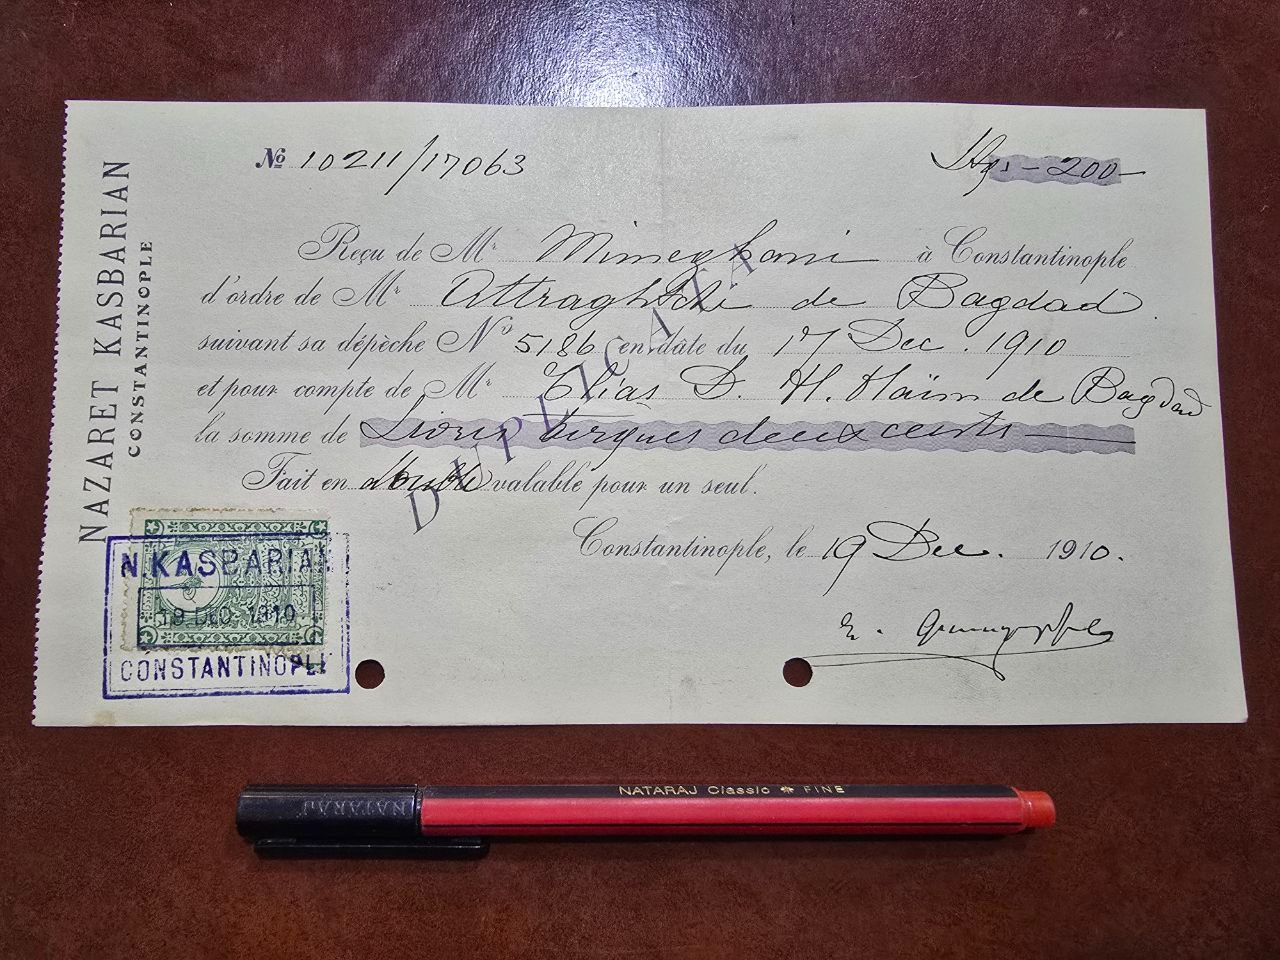 NAZARET KASBARIAN
CONSTANTINOPLE
№ 10211/17063
Ltqs - 200 -
Reçu de Mr Mimeghani à Constantinople
d'ordre de Mr Attraghtchi de Bagdad.
suivant sa dépèche No 5186 en dâte du 17 Dec. 1910
et pour compte de Mr Elias D. H. Haïm de Bagdad
la somme de Livres turques deux cents
Fait en double valable pour un seul.
DUPLICATA
Constantinople, le 19 Dec. 1910.
E.
N. KASBARIAN
19 DEC. 1910
CONSTANTINOPLE
NATARAJ
NATARAJ Classic * FINE